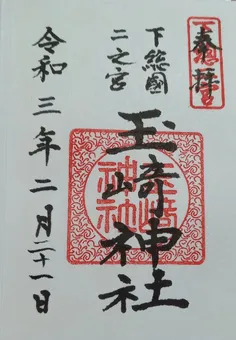 奉拝
下総國
二之宮
玉﨑神社
令和三年二月二十一日